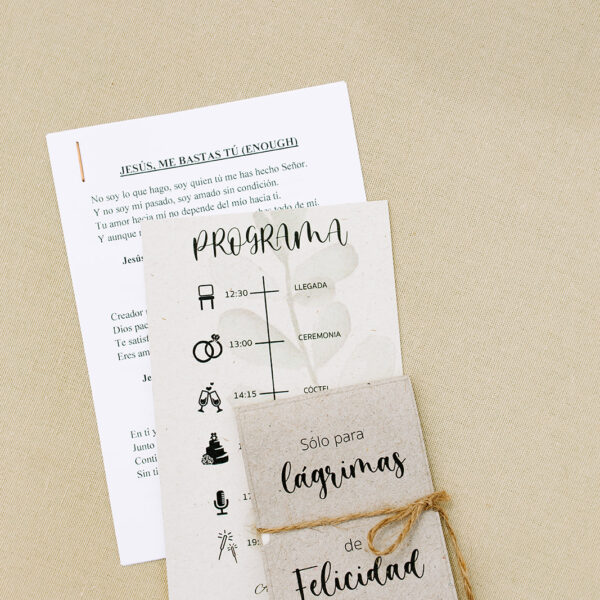 JESÚS, ME BASTAS TÚ (ENOUGH)
No soy lo que hago, soy quien tú me has hecho Señor.
Y no soy mi pasado, soy amado sin condición.
Tu amor hacia mí no depende del mío hacia ti.
Y aunque todo de mí
Jesús
Creador
Dios
Te
Eres
En ti y
Junto
Sin
PROGRAMA
12:30 LLEGADA
13:00 CEREMONIA
14:15 CÓCTEL
Sólo para
lágrimas
de
Felicidad